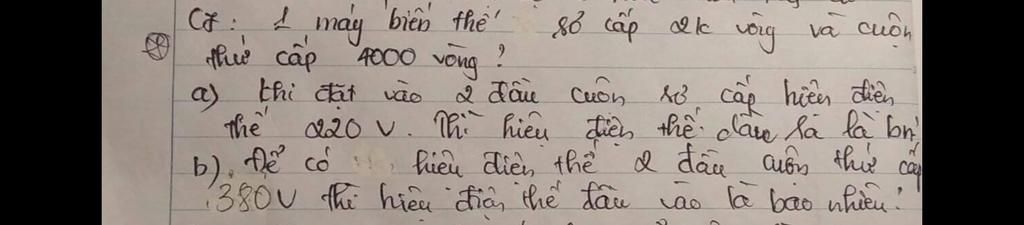 C7: 1 máy biến thế sơ cấp 2k vòng và cuộn
thứ cấp 4000 vòng?
a) Khi đặt vào 2 đầu cuôn sơ cấp hiêu điên
thế 220 V. Thì hiêu điện thế đầu ra là bn
b) Để có hiêu điên thế 2 đầu cuôn thứ cấp
380V thì hiêu điên thế đầu vào là bao nhiêu?